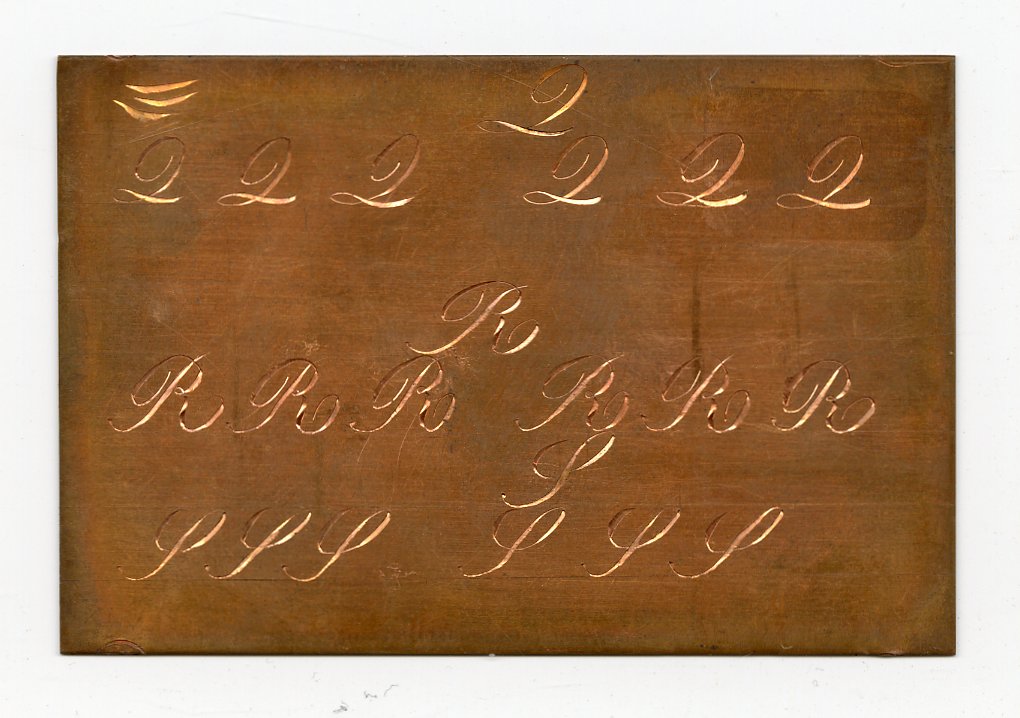 Q
Q Q Q Q Q Q
R
R R R R R R
S
S S S S S S